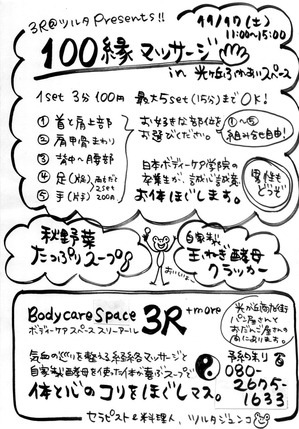 3R@ツルタ Presents!!
11/17(土)
11:00〜15:00
100縁マッサージ
in 光が丘ふれあいスペース
1set 3分100円 最大5set(15分)まで OK!
① 首と肩上部
② 肩甲骨まわり
③ 背中〜腰部
④ 足(脚)
⑤ 手(手)
両もも 2set 200円
お好きな部位を
お選びください。
①〜⑤
組み合せ自由!
日本ボディーケア学院の
卒業生が、誠心誠意
お体ほぐします。
男性も
どうぞ
秋野菜
たっぷりスープ
自家製
玉ねぎ酵母
クラッカー
おいしいよ〜
Bodycare Space 3R +more
ボディーケアスペース スリーアール
光が丘商店街
パン屋さんと
おだんご屋さんの
間にあります。
気血の巡りを整える経絡マッサージと
自家製酵母を使った体が喜ぶスープで
体と心のコリをほぐしマス。
予約あり
080-
2675-
1633
セラピスト&料理人、ツルタジュンコ